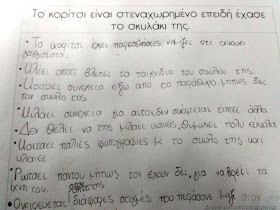 Το κορίτσι είναι στεναχωρημένο επειδή έχασε
το σκυλάκι της.
• Το κορίτσι έχει παραισθήσεις, νομίζει ότι ακούει
γαβγίσματα.
• Κλαίει όποτε βλέπει τα παιχνίδια του σκύλου της.
• Κοιτάζει συνέχεια έξω από το παράθυρο, μήπως δει
τον σκύλο της
• Μιλάει συνέχεια για αυτόν, δεν σκέφτεται τίποτε άλλο.
• Δεν θέλει να της μιλάει κανείς, θυμώνει πολύ εύκολα
• Κοιτάζει παλιές φωτογραφίες με το σκύλο της και
κλαίει.
• Ρωτάει παντού μήπως τον έχουν δει, για να βρει τα
ίχνη του.
• Ονειρεύεται διάφορες στιγμές που πέρασαν μαζί στον